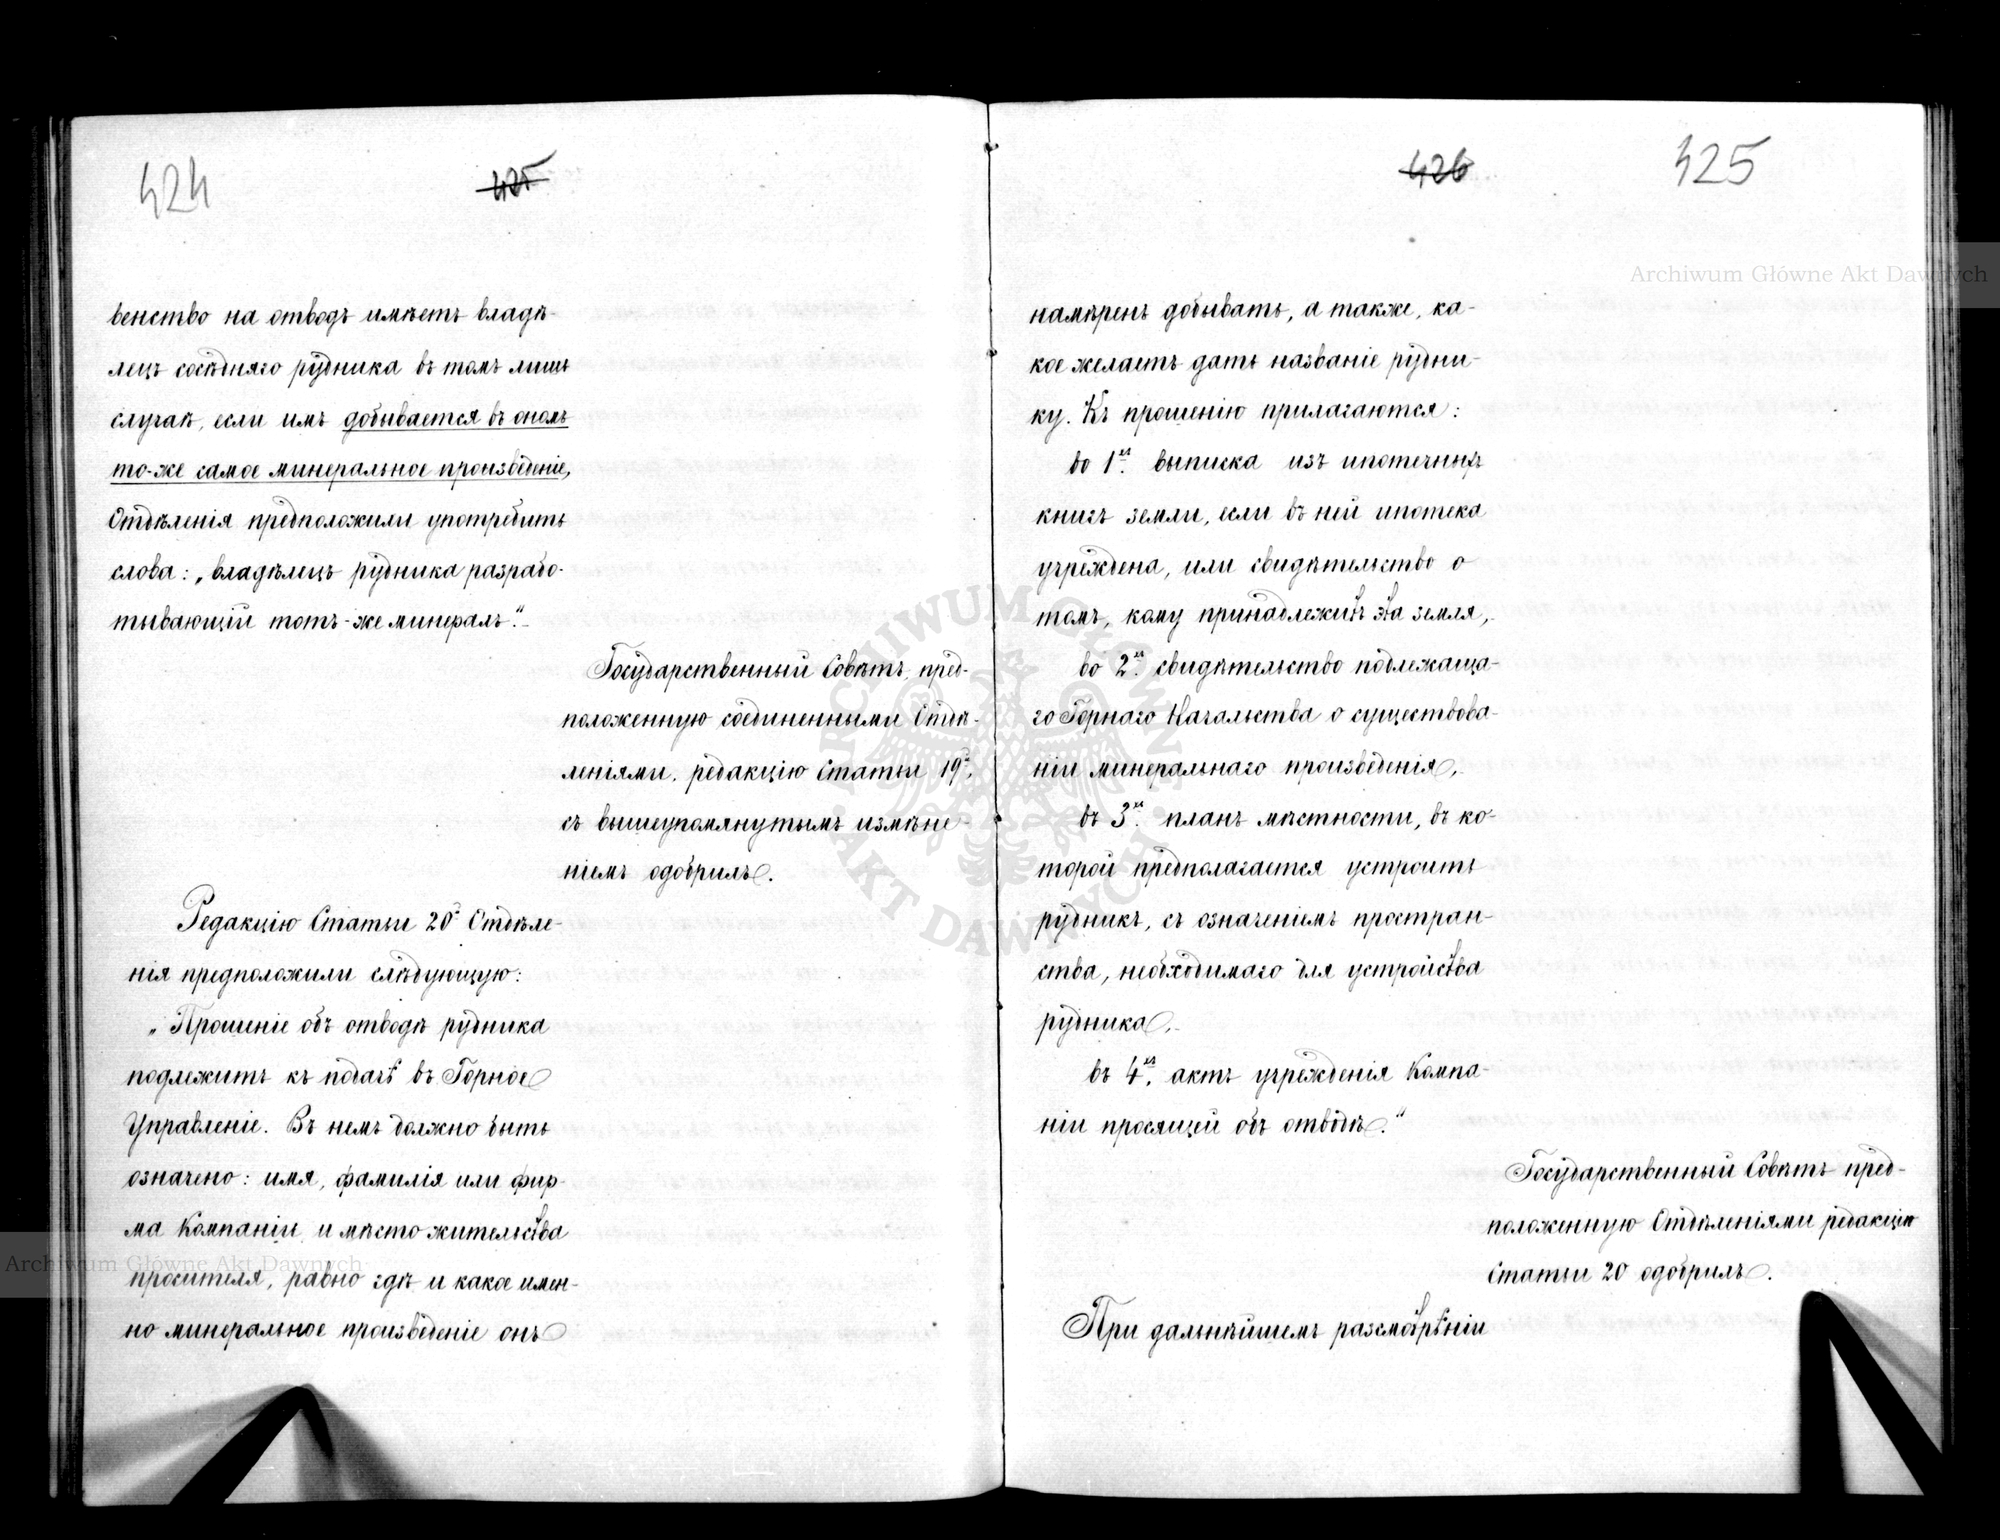 424
425
венство на отводъ имѣетъ владѣ-
лецъ сосѣдняго рудника въ томъ лишь
случаѣ, если имъ добывается въ ономъ
то-же самое минеральное произведеніе,
Отдѣленія предположили употребить
слова: „владѣлецъ рудника разрабо-
тывающій тотъ-же минералъ“.
Государственный Совѣтъ, пред-
положенную соединенными Отдѣ-
леніями, редакцію Статьи 19й,
съ вышеупомянутымъ измѣне-
ніемъ одобрилъ.
Редакцію Статьи 20й Отдѣле-
нія предположили слѣдующую:
„Прошеніе объ отводѣ рудника
подлежитъ къ подачѣ въ Горное
Управленіе. Въ немъ должно быть
означено: имя, фамилія или фир-
ма Компаніи, и мѣсто жительства
просителя, равно гдѣ и какое имен-
но минеральное произведеніе онъ
426
425
намѣренъ добывать, а также, ка-
кое желаетъ дать названіе рудни-
ку. Къ прошенію прилагаются:
во 1хъ. выписка изъ ипотечныхъ
книгъ земли, если въ ней ипотека
учреждена, или свидѣтельство о
томъ, кому принадлежитъ эта земля,
во 2хъ. свидѣтельство подлежаща-
го Горнаго Начальства о существова-
ніи минеральнаго произведенія,
въ 3хъ. планъ мѣстности, въ ко-
торой предполагается устроить
рудникъ, съ означеніемъ простран-
ства, необходимаго для устройства
рудника,
въ 4хъ. актъ учрежденія Компа-
ніи просящей объ отводѣ.“
Государственный Совѣтъ пред-
положенную Отдѣленіями редакцію
Статьи 20 одобрилъ.
При дальнѣйшемъ разсмотрѣніи
Archiwum Główne Akt Dawnych
Archiwum Główne Akt Dawnych
ARCHIWUM GŁÓWNE
AKT DAWNYCH